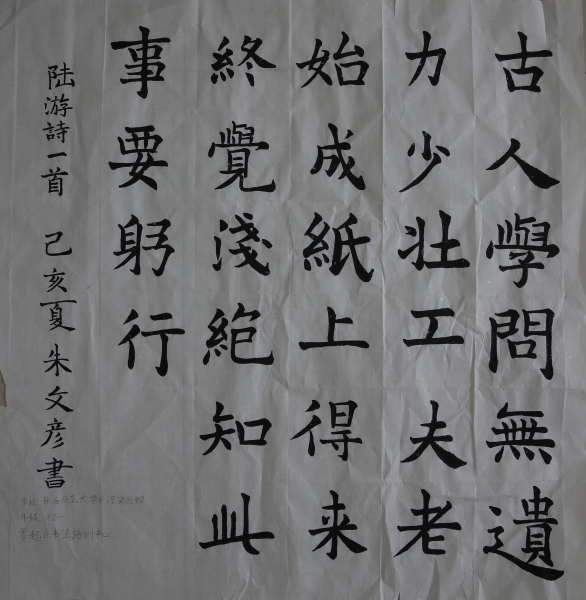 古人學問無遺
力少壮工夫老
始成紙上得来
終覺淺絶知此
事要躬行
陆游詩一首 己亥夏朱文彦書
年级:初一